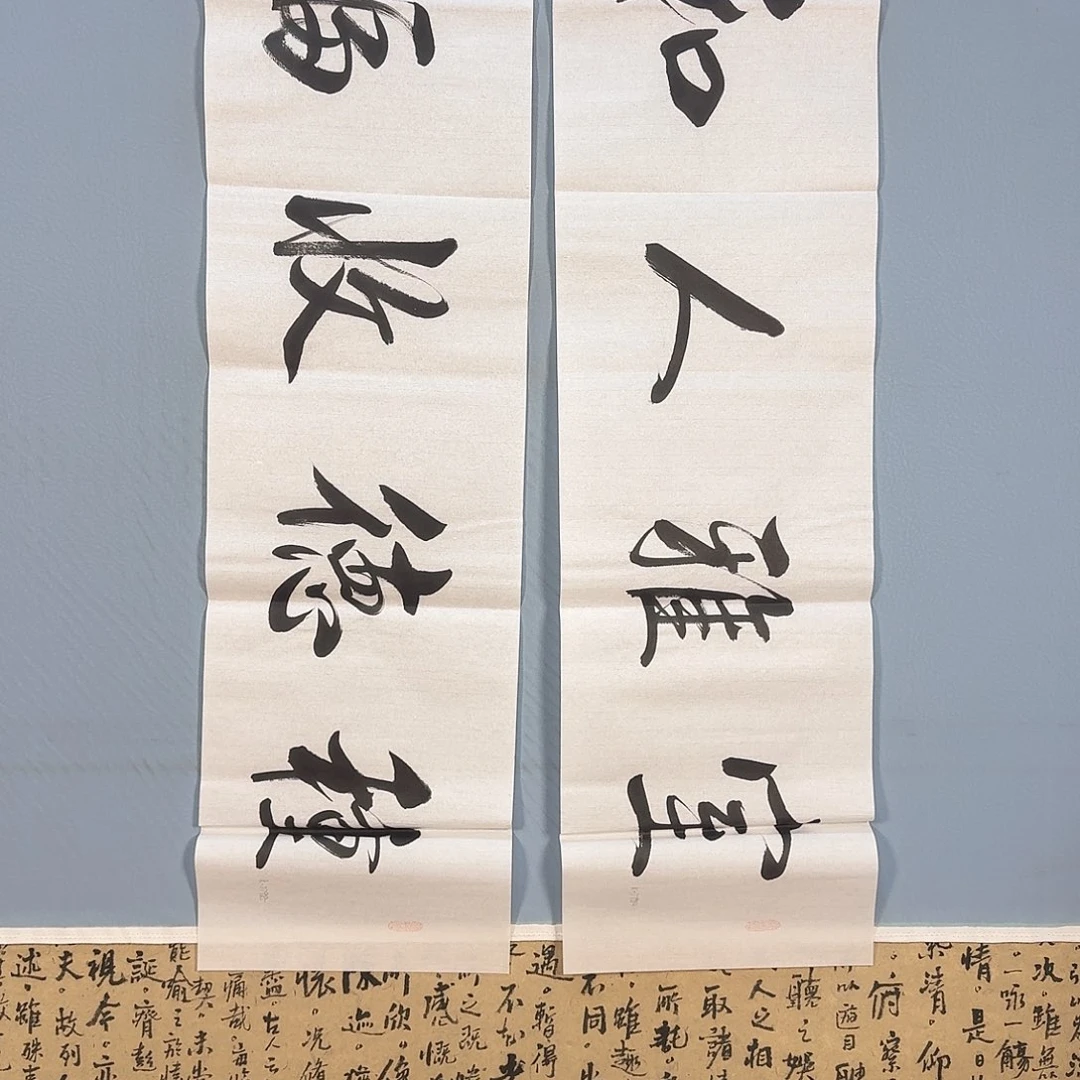 室雅人和
種德收福
次。雖無
一詠一觴
情。是日
氣清。仰
俯察
所以遊目
聽之娛
人之相
取諸
所託
雖趣
不同。
遇。暫得
不知老
之既
感慨
所欣。俛
迹。猶
懷。况脩
盡。古人云
痛哉。每
契。未嘗
能喻之於
誕。齊彭
視今。亦
夫。故列
述。雖殊